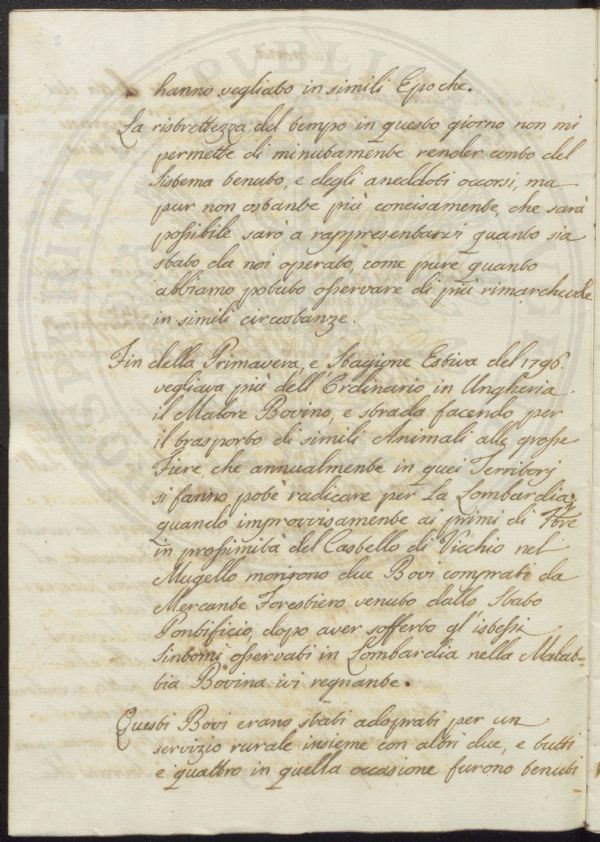 hanno vegliato in simili Epoche.
La ristrettezza del tempo in questo giorno non mi
permette di minutamente render conto del
sistema tenuto, e degli aneddoti occorsi, ma
pur non ostante più concisamente, che sarà
possibile sarò a rappresentarvi quanto sia
stato da noi operato, come pure quanto
abbiamo potuto osservare di più rimarchevole
in simili circostanze.
Fin della Primavera, e Stagione Estiva del 1796.
vegliava più dell'Ordinario in Ungheria
il Malore Bovino, e strada facendo per
il trasporto di simili Animali alle grosse
Fiere che annualmente in quei Territorj
si fanno potè radicare per La Lombardia,
quando improvvisamente ai primi di
in prossimità del Castello di Vicchio nel
Mugello morirono due Bovi comprati da
Mercante Forestiero venuto dallo Stato
Pontificio, dopo aver sofferto gl'istessi
sintomi osservati in Lombardia nella Malat-
tia Bovina ivi regnante.
Questi Bovi erano stati adoprati per un
servizio rurale insieme con altri due, e tutti
e quattro in quella occasione furono tenuti